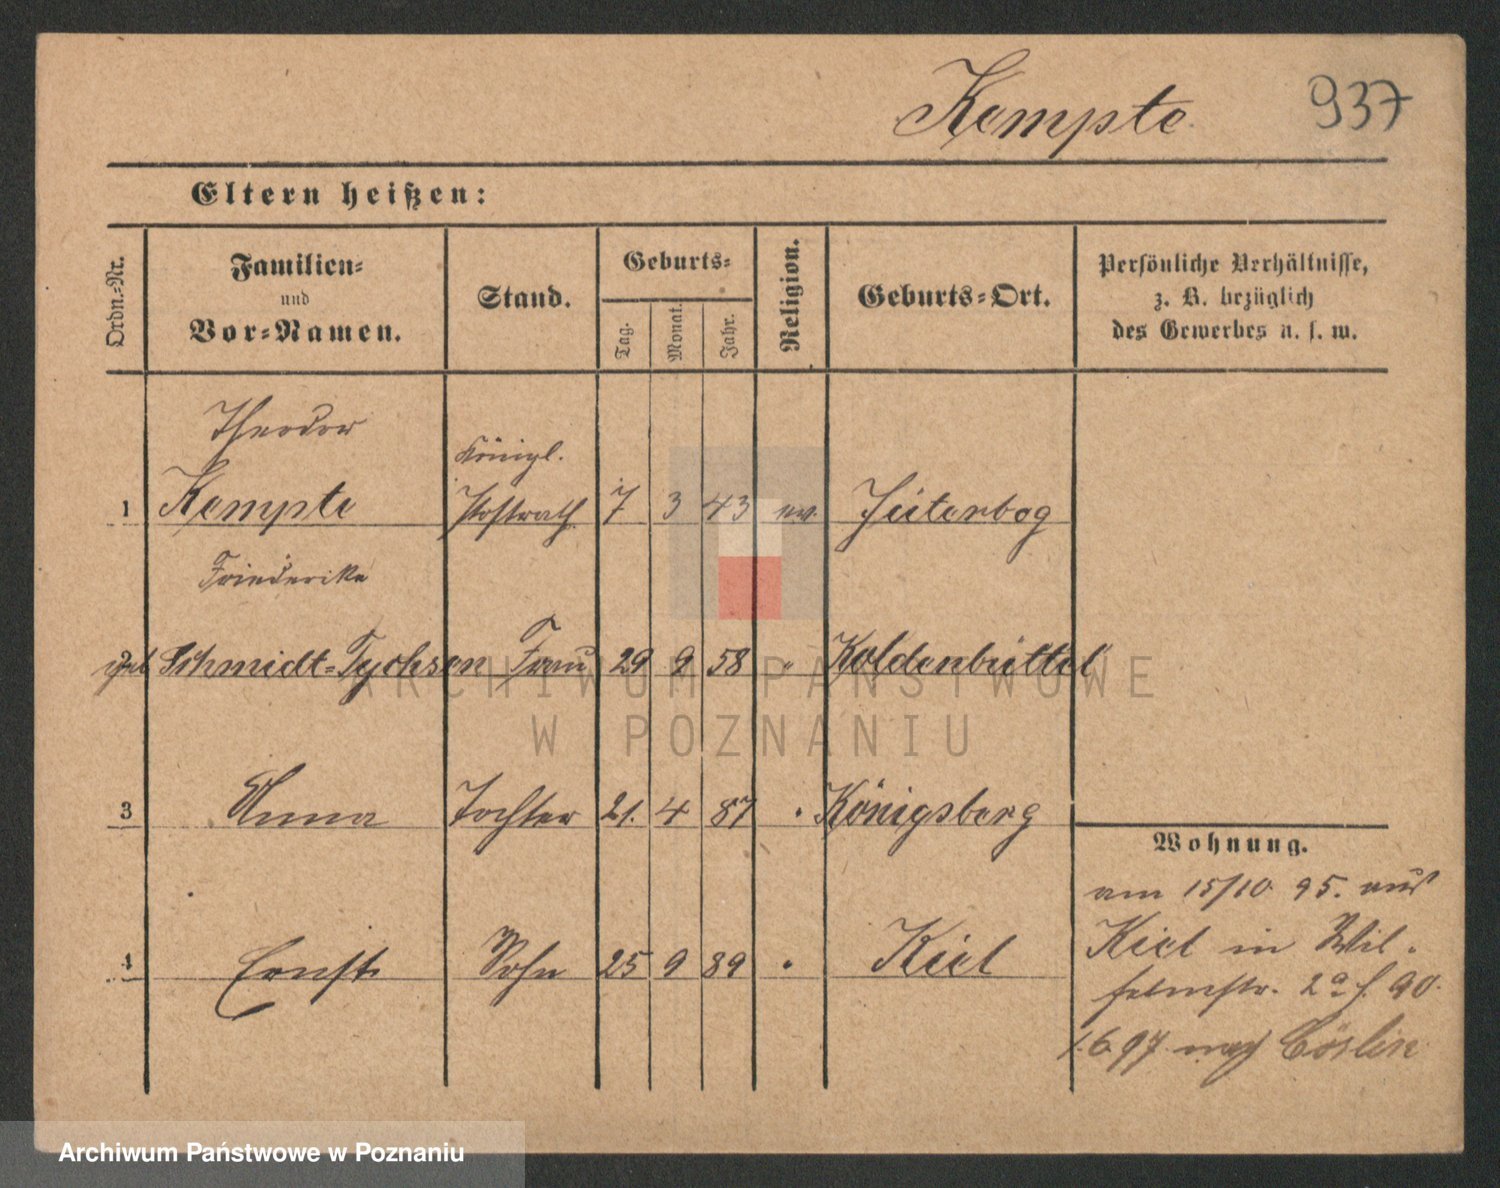 Kempte 937
Eltern heißen:
Ordn.-Nr. Familien- und Vor-Namen. Stand. Geburts- Tag. Monat. Jahr. Religion. Geburts-Ort. Persönliche Verhältnisse, z. B. bezüglich des Gewerbes u. s. w.
Theodor
Königl.
1 Kempte Postrath 7 3 43 ev. Jüterbog
Friederike
2 geb Schmidt-Tychsen Frau 29 9 58 " Koldenbüttel
3 Anna Tochter 21. 4 87 " Königsberg
Wohnung.
am 15/10. 95. aus
4 Ernst Sohn 25 9 89 " Kiel
Kiel in Wil-
helmstr. 2a f. 90.
1.6.97 nach Cöslin
ARCHIWUM PAŃSTWOWE
W POZNANIU
Archiwum Państwowe w Poznaniu